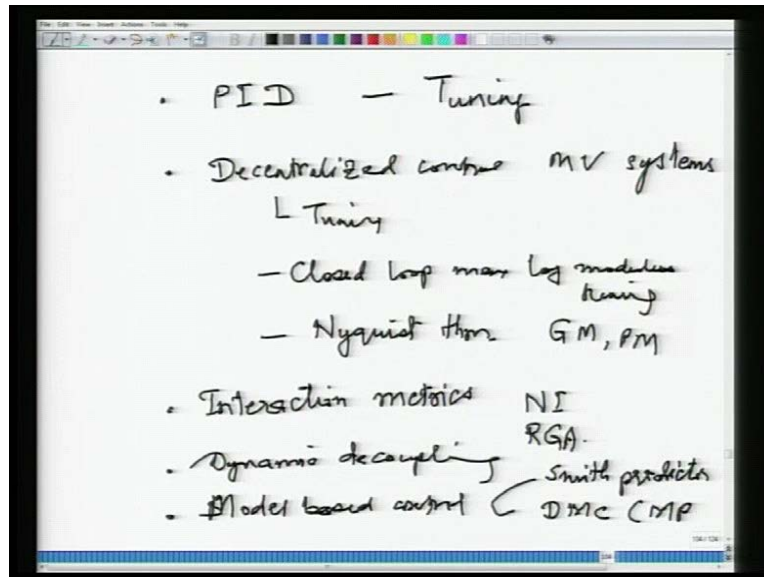 File Edit View Insert Actions Tools Help
• PID — Tuning
• Decentralized control MV systems
└ Tuning
— Closed loop max log modulus tuning
— Nyquist thm. GM, PM
• Interaction metrics NI
RGA.
• Dynamic decoupling
• Model based control Smith predictor
DMC CMP
104 / 104
104